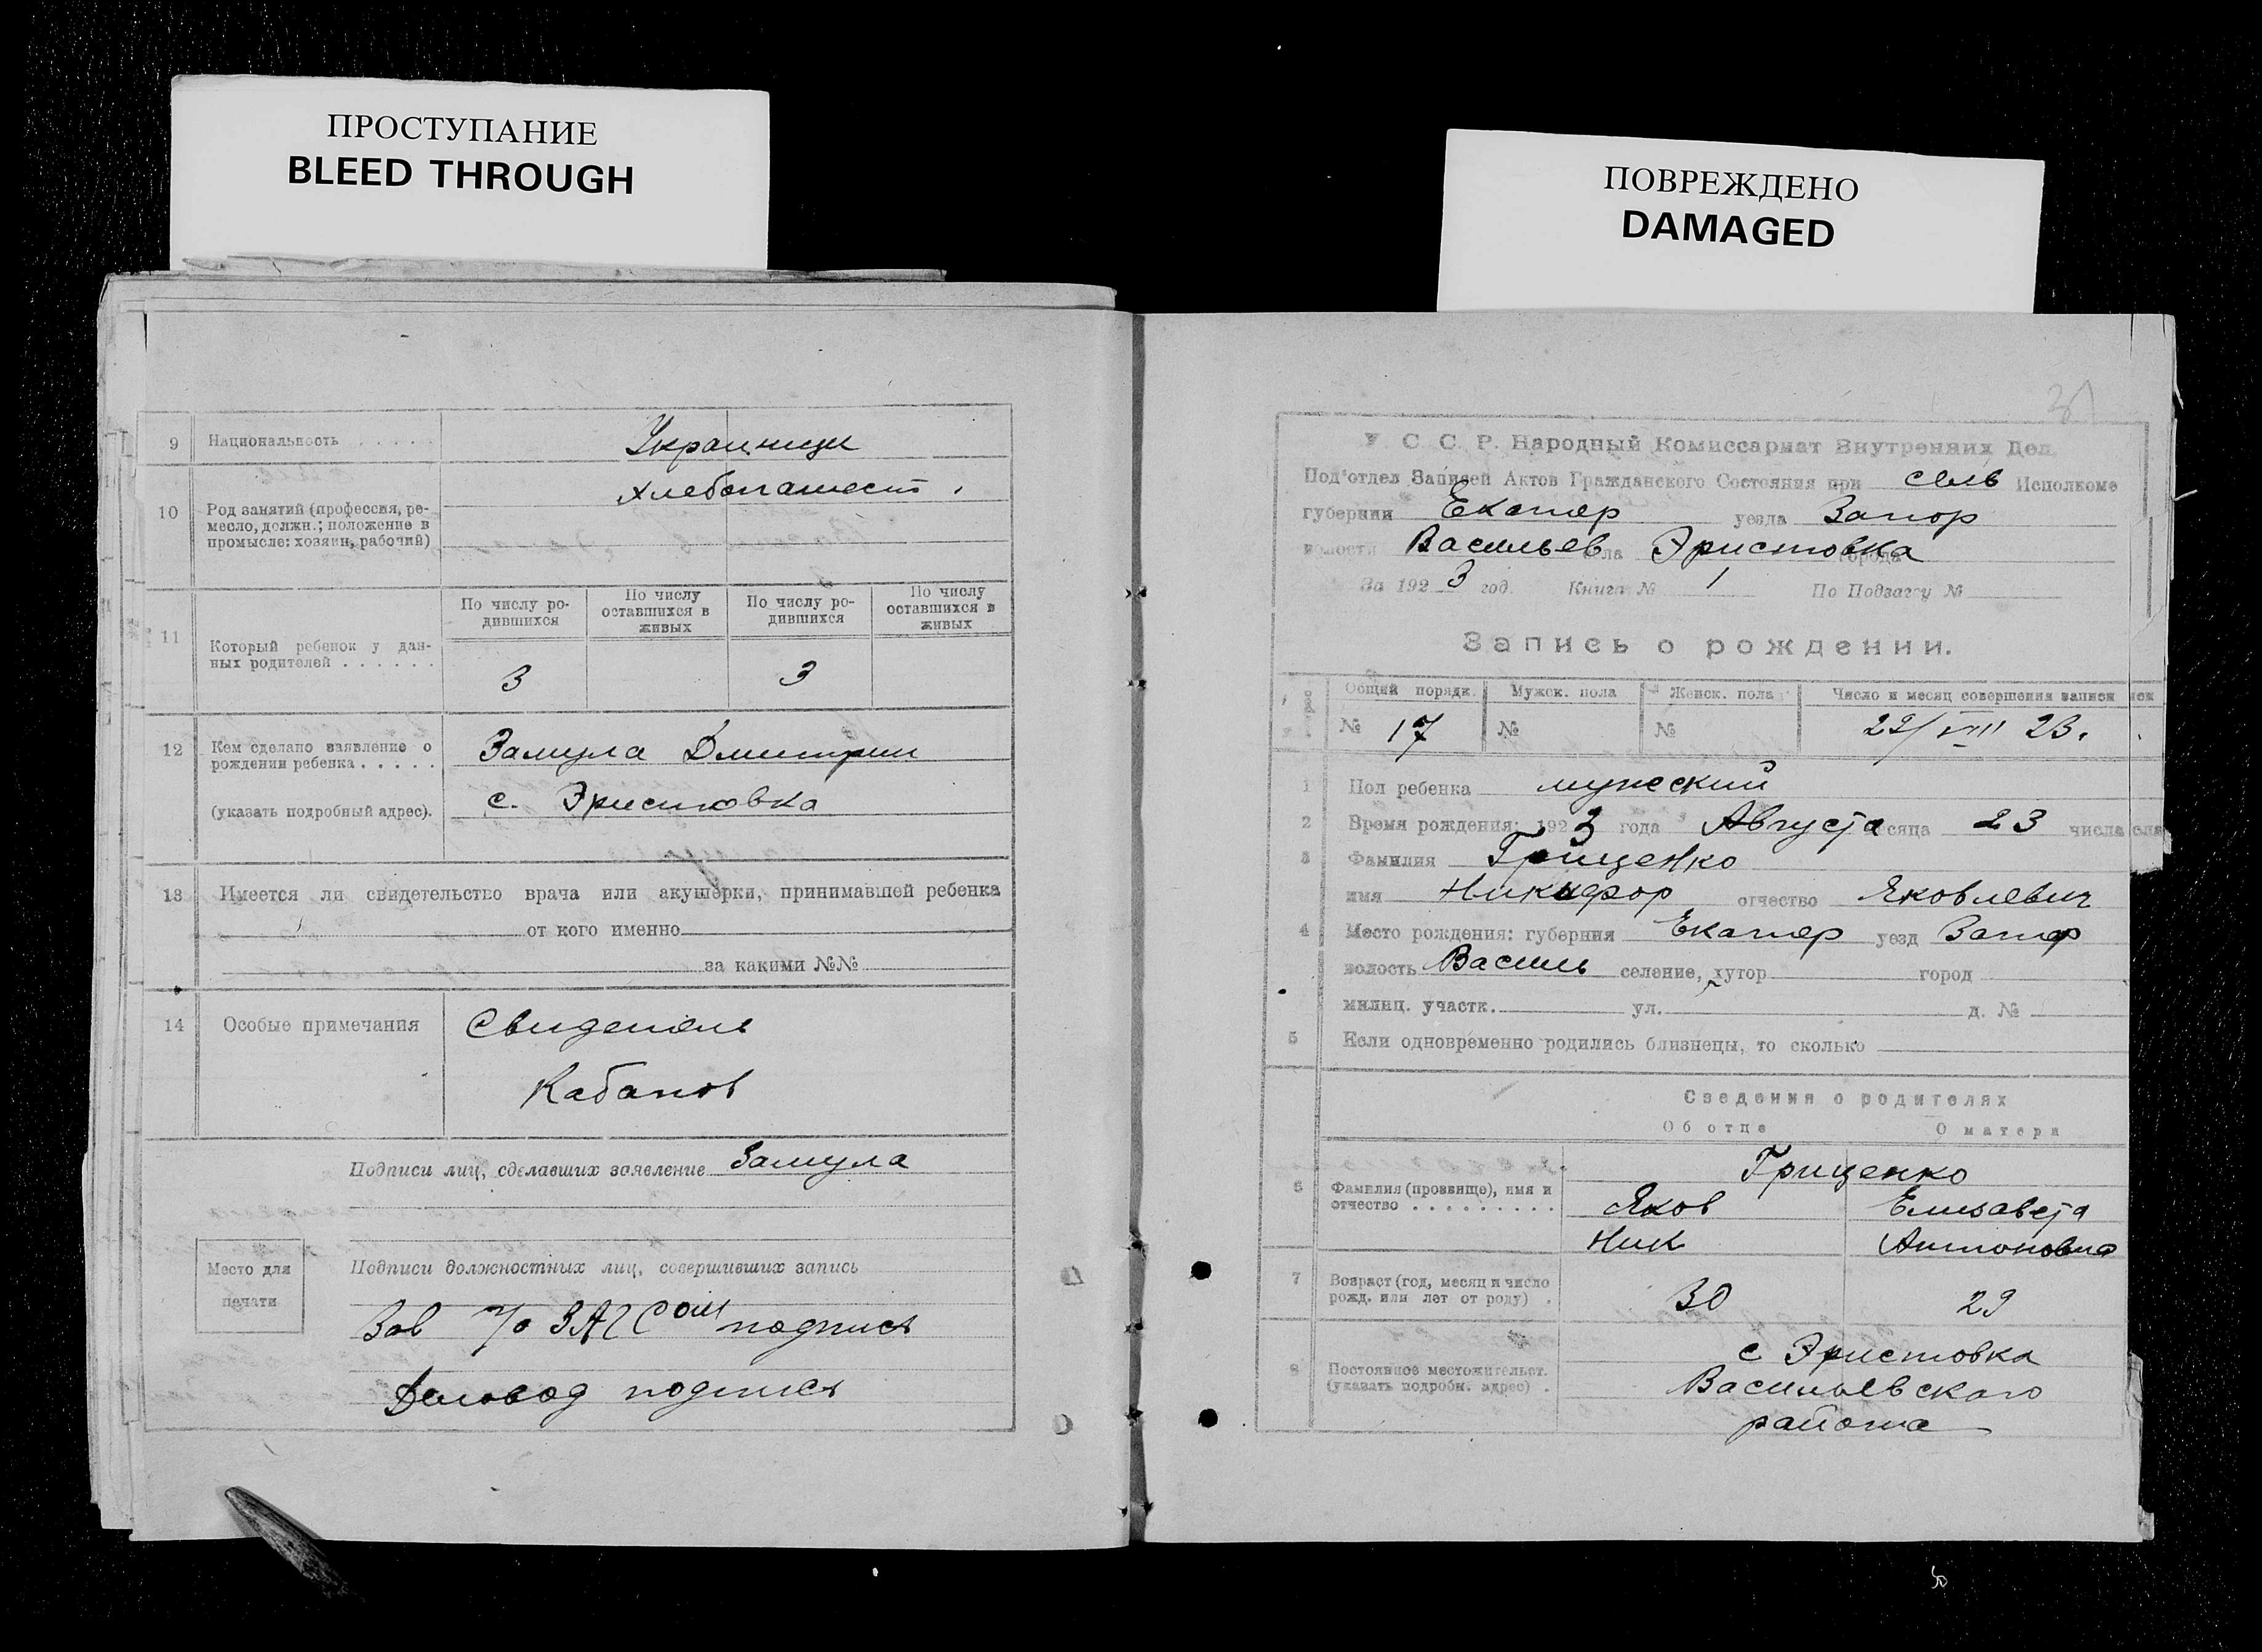 ПРОСТУПАНИЕ
BLEED THROUGH
ПОВРЕЖДЕНО
DAMAGED
9 Национальность . . . . . Украинцы
хлебопашест
10 Род занятий (профессия, ре-
месло, должн.; положение в
промысле: хозяин, рабочий)
11 Который ребенок у дан-
ных родителей . . . . . .
По числу ро-
дившихся
По числу
оставшихся в
живых
По числу ро-
дившихся
По числу
оставшихся в
живых
3 3
12 Кем сделано заявление о
рождении ребенка . . . . .
(указать подробный адрес).
Замула Дмитрий
с. Эристовка
13 Имеется ли свидетельство врача или акушерки, принимавшей ребенка
от кого именно
за какими №№
14 Особые примечания Свидетель
Кабанов
Подписи лиц, сделавших заявление Замула
Место для
печати
Подписи должностных лиц, совершивших запись
Зав п/о ЗАГС подпись
Деловод подпись
31
У. С. С. Р. Народный Комиссариат Внутренних Дел.
Под'отдел Записей Актов Гражданского Состояния при сель Исполкоме
губернии Екатер уезда Запор
волости Васильев села Эристовка города
За 1923 год. Книга № 1 По Подзагсу №
Запись о рождении.
Общий порядк. Мужск. пола Женск. пола Число и месяц совершения записи
№ 17 № № 29/VIII 23.
1 Пол ребенка мужеский
2 Время рождения: 1923 года Августа месяца 23 числа
3 Фамилия Гриценко
имя Никифор отчество Яковлевич
4 Место рождения: губерния Екатер уезд Запор
волость Василь селение, хутор город
милиц. участк. ул. д. №
5 Если одновременно родились близнецы, то сколько
Сведения о родителях
Об отце О матери
6 Фамилия (прозвище), имя и
отчество . . . . . . . . .
Гриценко
Яков Елизавета
Ник Антоновна
7 Возраст (год, месяц и число
рожд. или лет от роду) .
30 29
8 Постоянное местожительст.
(указать подробн. адрес) .
с Эристовка
Васильевского
района